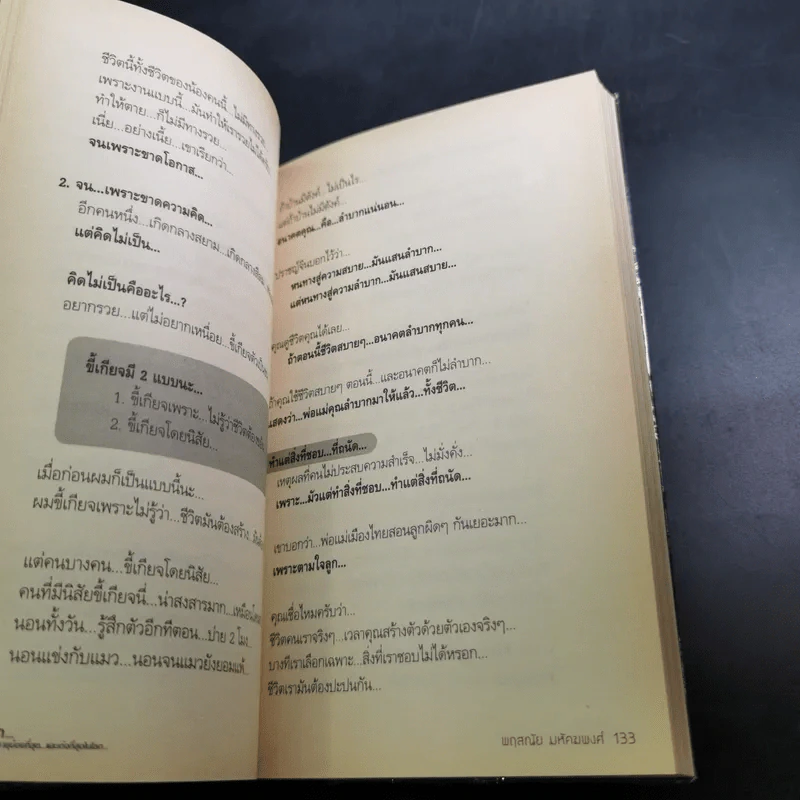 ชีวิตนี้ทั้งชีวิตของน้องคนนี้...ไม่มีทางรวย...
เพราะงานแบบนี้...มันทำให้เรารวยไม่ได้
ทำให้ตาย...ก็ไม่มีทางรวย...
เนี่ย...อย่างเนี้ย...เขาเรียกว่า...
จนเพราะขาดโอกาส...
2. จน...เพราะขาดความคิด...
อีกคนหนึ่ง...เกิดกลางสยาม...เกิดกลาง
แต่คิดไม่เป็น...
คิดไม่เป็นคืออะไร...?
อยากรวย...แต่ไม่อยากเหนื่อย...ขี้เกียจตัวเป็น
ขี้เกียจมี 2 แบบนะ...
1. ขี้เกียจเพราะ...ไม่รู้ว่าชีวิตต้อง
2. ขี้เกียจโดยนิสัย...
เมื่อก่อนผมก็เป็นแบบนี้นะ...
ผมขี้เกียจเพราะไม่รู้ว่า...ชีวิตมันต้องสร้าง
แต่คนบางคน...ขี้เกียจโดยนิสัย...
คนที่มีนิสัยขี้เกียจนี่...น่าสงสารมาก...เหมือน
นอนทั้งวัน...รู้สึกตัวอีกทีตอน...บ่าย 2 โมง
นอนแข่งกับแมว...นอนจนแมวยังยอมแพ้
ถ้าบ้านมีตังค์...ไม่เป็นไร...
แต่ถ้าบ้านไม่มีตังค์...
อนาคตคุณ...คือ...ลำบากแน่นอน...
ปราชญ์จีนบอกไว้ว่า...
หนทางสู่ความสบาย...มันแสนลำบาก...
แต่หนทางสู่ความลำบาก...มันแสนสบาย...
คุณดูชีวิตคุณได้เลย...
ถ้าตอนนี้ชีวิตสบายๆ...อนาคตลำบากทุกคน...
ถ้าคุณใช้ชีวิตสบายๆ ตอนนี้...และอนาคตก็ไม่ลำบาก...
แสดงว่า...พ่อแม่คุณลำบากมาให้แล้ว...ทั้งชีวิต...
ทำแต่สิ่งที่ชอบ...ที่ถนัด...
เหตุผลที่คนไม่ประสบความสำเร็จ...ไม่มั่งคั่ง...
เพราะ...มัวแต่ทำสิ่งที่ชอบ...ทำแต่สิ่งที่ถนัด...
เขาบอกว่า...พ่อแม่เมืองไทยสอนลูกผิดๆ กันเยอะมาก...
เพราะตามใจลูก...
คุณเชื่อไหมครับว่า...
ชีวิตคนเราจริงๆ...เวลาคุณสร้างตัวด้วยตัวเองจริงๆ...
บางทีเราเลือกเฉพาะ...สิ่งที่เราชอบไม่ได้หรอก...
ชีวิตเรามันต้องปะปนกัน...
พฤสณัย มหัคฆพงศ์ 133